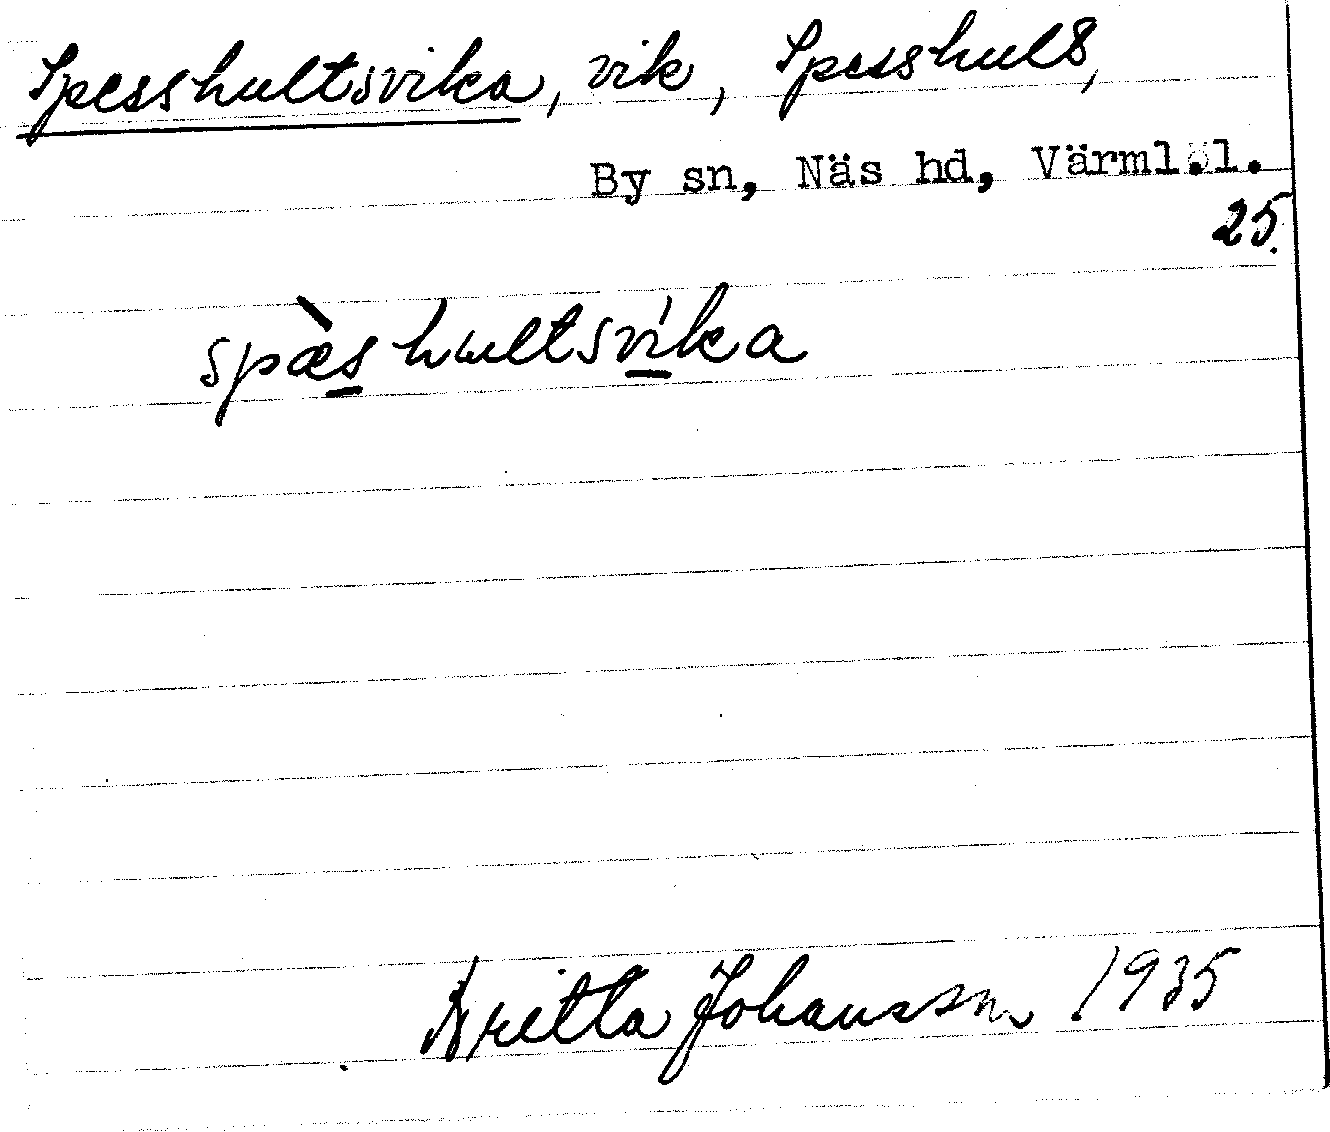 Spesshultsvika, vik, Spesshult,
By sn, Näs hd, Värml.l.
25.
spæ̀shultsvíka
Britta Johansson 1935